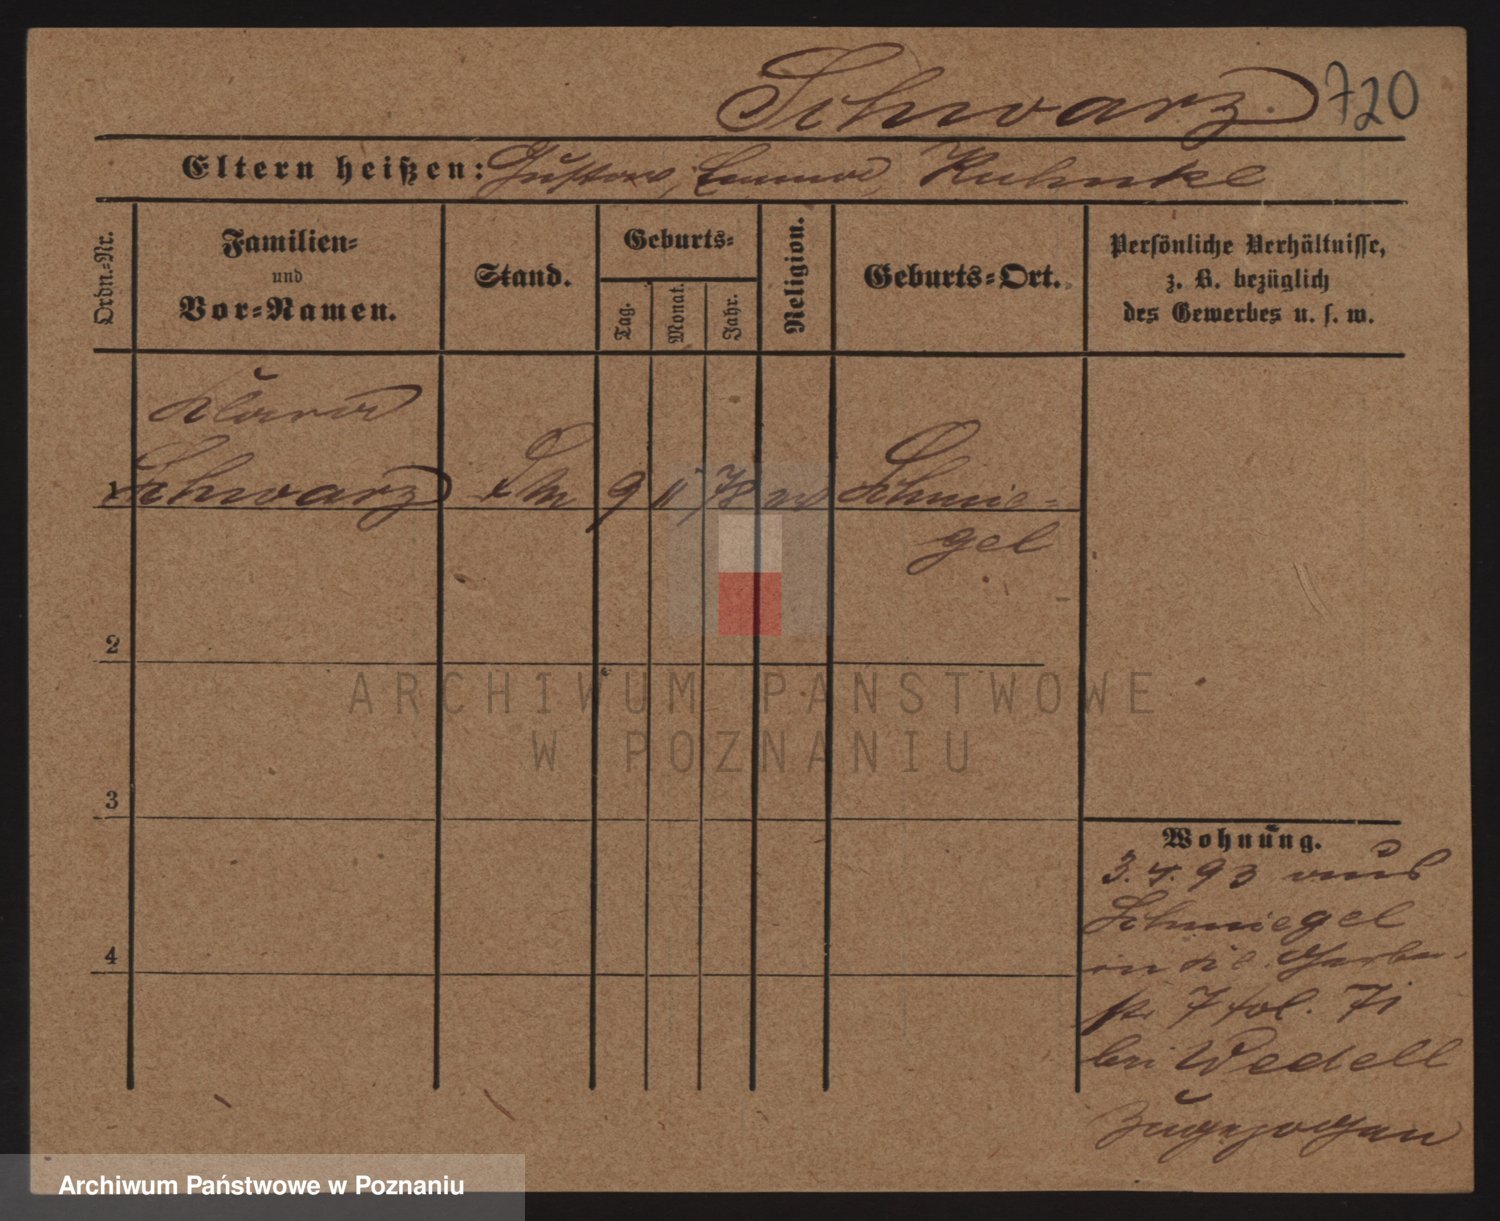 Schwarz. 720
Eltern heißen: Gustav, Emma, Kuhnke
Ordn.-Nr.
Familien-
und
Vor-Namen.
Stand.
Geburts-
Tag.
Monat.
Jahr.
Religion.
Geburts-Ort.
Persönliche Verhältnisse,
z. B. bezüglich
des Gewerbes u. s. w.
Klara
1 Schwarz 9 11 78 ev Schmie-
gel
2
3
4
ARCHIWUM PANSTWOWE
W POZNANIU
Wohnung.
3. 4. 93 aus
Schmiegel
in die Gerber-
str 7 fol. 71
bei Wedell
zugezogen
Archiwum Państwowe w Poznaniu